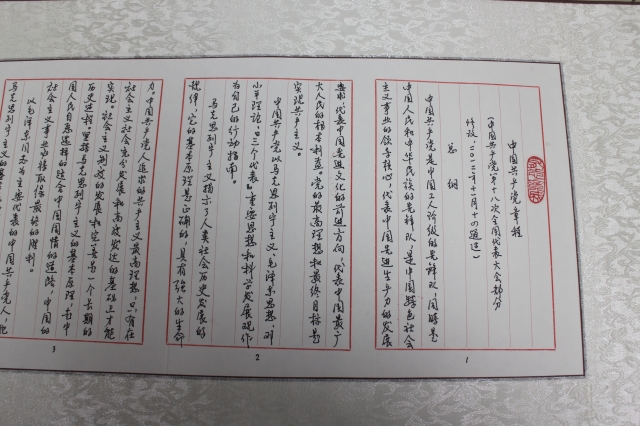 中国共产党章程
(中国共产党第十八次全国代表大会部分
修改,二〇一二年十一月十四通过)
总纲
中国共产党是中国工人阶级的先锋队,同时是
中国人民和中华民族的先锋队,是中国特色社会
主义事业的领导核心,代表中国先进生产力的发展
1
要求,代表中国先进文化的前进方向,代表中国最广
大人民的根本利益。党的最高理想和最终目标是
实现共产主义。
中国共产党以马克思列宁主义、毛泽东思想、邓
小平理论、“三个代表”重要思想和科学发展观作
为自己的行动指南。
马克思列宁主义揭示了人类社会历史发展的
规律,它的基本原理是正确的,具有强大的生命
2
力。中国共产党人追求的共产主义最高理想,只有在
社会主义社会充分发展和高度发达的基础上才能
实现。社会主义制度的发展和完善是一个长期的
历史进程。坚持马克思列宁主义的基本原理,走中
国人民自愿选择的适合中国国情的道路,中国的
社会主义事业必将取得最终的胜利。
以毛泽东同志为主要代表的中国共产党人,把
马克思列宁主义的基
3